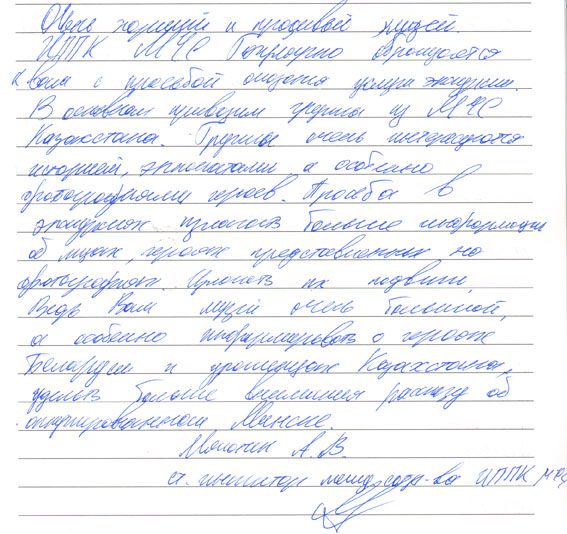 Очень хороший и красивый музей.
ИППК МЧС Беларуси обращается
к вам с просьбой оказать услуги экскурсии.
В основном приводим группы из МЧС
Казахстана. Группы очень интересуются
историей, экспонатами и особенно
фотографиями героев. Просьба в
экскурсиях излагать больше информации
об лицах, героях представленных на
фотографиях. Описать их подвиги,
Ведь Ваш музей очень большой,
а особенно информировать о героях
Беларуси и уроженцах Казахстана,
уделить больше внимания рассказу об
оккупированном Минске.
А. В.
ст. инспектор ИППК МЧС